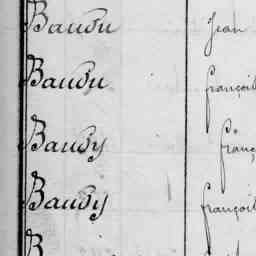 Baudu Jean
Baudu françoi
Baudy franç
Baudy françois
B